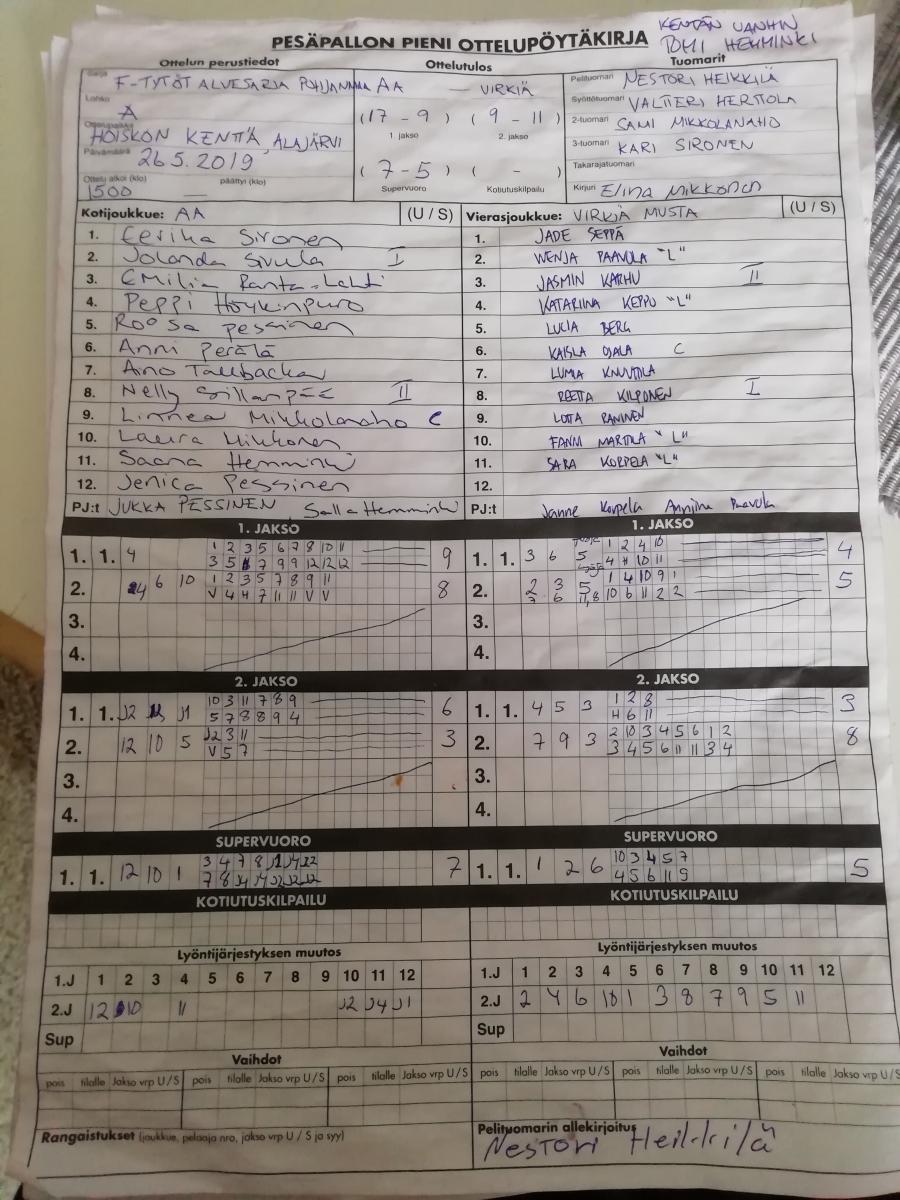 KENTÄN VANHIN
TOMI HEMMINKI
PESÄPALLON PIENI OTTELUPÖYTÄKIRJA
Ottelun perustiedot
Sarja F-TYTÖT ALUESARJA POHJANMAA
Lohko A
Ottelupaikka HOISKON KENTTÄ, ALAJÄRVI
Päivämäärä 26.5.2019
Ottelu alkoi (klo) päättyi (klo)
1500 —
Ottelutulos
AA — VIRKIÄ
(17 - 9) (9 - 11)
1. jakso 2. jakso
(7 - 5) ( - )
Supervuoro Kotiutuskilpailu
Tuomarit
Pelituomari NESTORI HEIKKILÄ
Syöttötuomari VALTTERI HERTTOLA
2-tuomari SAMI MIKKOLANAHO
3-tuomari KARI SIRONEN
Takarajatuomari
Kirjuri Elina Mikkonen
Kotijoukkue: AA (U / S)
1. Eerika Sironen
2. Jolanda Sivula I
3. Emilia Ranta-Lahti
4. Peppi Höykinpuro
5. Roosa Pessinen
6. Anni Perälä
7. Aino Tallbacka
8. Nelly Sillanpää II
9. Linnea Mikkolanaho C
10. Laura Mikkonen
11. Saana Hemminki
12. Jenica Pessinen
PJ:t JUKKA PESSINEN, Salla Hemminki
Vierasjoukkue: VIRKIÄ MUSTA (U / S)
1. JADE SEPPÄ
2. WENJA PAAVOLA "L"
3. JASMIN KARHU II
4. KATARIINA KEPPO "L"
5. LUCIA BERG
6. KAISLA OJALA C
7. LUMIA KNUUTTILA
8. REETTA KILPONEN I
9. LOTTA RANINEN
10. FANNI MARTTILA "L"
11. SARA KORPELA "L"
12.
PJ:t Janne Korpela Anniina Paavola
1. JAKSO
1. 1. 4
1 2 3 5 6 7 8 10 11
9
2. 4 6 10
1 2 3 5 7 8 9 11
V 4 4 7 11 11 V V
8
3.
4.
1. JAKSO
1. 1. 3 6 5
1 2 4 10
4 4 10 11
4
2. 2 3 5
1 4 10 9 1
10 6 11 2 2
5
3.
4.
2. JAKSO
1. 1. 12 11
10 3 11 7 8 9
5 7 8 8 9 4
6
2. 12 10 5
12 3 11
V 5 7
3
3.
4.
2. JAKSO
1. 1. 4 5 3
1 2 8
4 6 11
3
2. 7 9 3
2 10 3 4 5 6 1 2
3 4 5 6 11 11 3 4
8
3.
4.
SUPERVUORO
1. 1. 12 10 1
3 4 7 8
7
SUPERVUORO
1. 1. 1 2 6
10 3 4 5 7
4 5 6 11 9
5
KOTIUTUSKILPAILU
KOTIUTUSKILPAILU
Lyöntijärjestyksen muutos
1.J 1 2 3 4 5 6 7 8 9 10 11 12
2.J 12 10 11 12 4 1
Sup
Lyöntijärjestyksen muutos
1.J 1 2 3 4 5 6 7 8 9 10 11 12
2.J 2 4 6 10 1 3 8 7 9 5 11
Sup
Vaihdot
pois tilalle Jakso vrp U / S pois tilalle Jakso vrp U / S pois tilalle Jakso vrp U / S
Vaihdot
pois tilalle Jakso vrp U / S pois tilalle Jakso vrp U / S pois tilalle Jakso vrp U / S
Rangaistukset (joukkue, pelaaja nro, jakso vrp U / S ja syy)
Pelituomarin allekirjoitus
Nestori Heikkilä